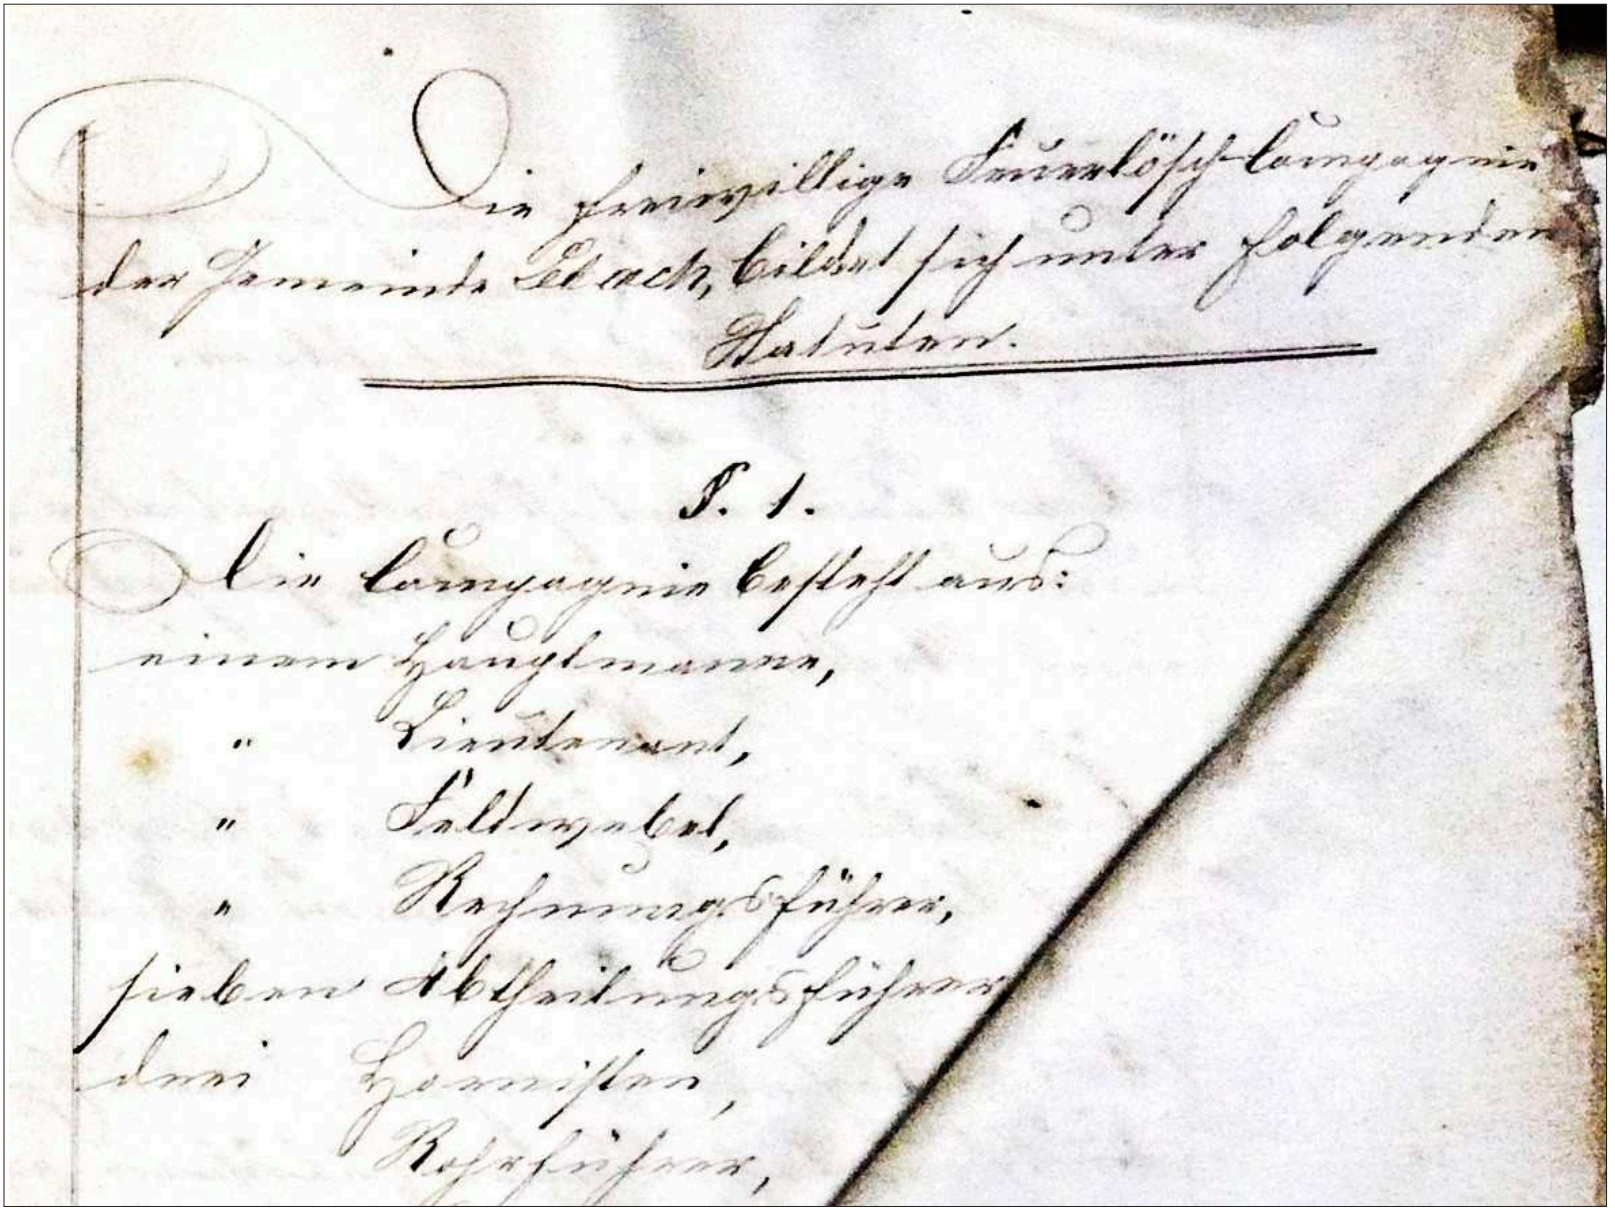 Die freiwillige Feuerlösch-Compagnie
der Gemeinde Elbach, bildet sich unter folgenden
Statuten.
§. 1.
Die Compagnie besteht aus:
einem Hauptmanne,
" Lieutenant,
" Feldwebel,
" Rechnungsführer,
sieben Abtheilungsführer
drei Hornisten,
Rohrführer,